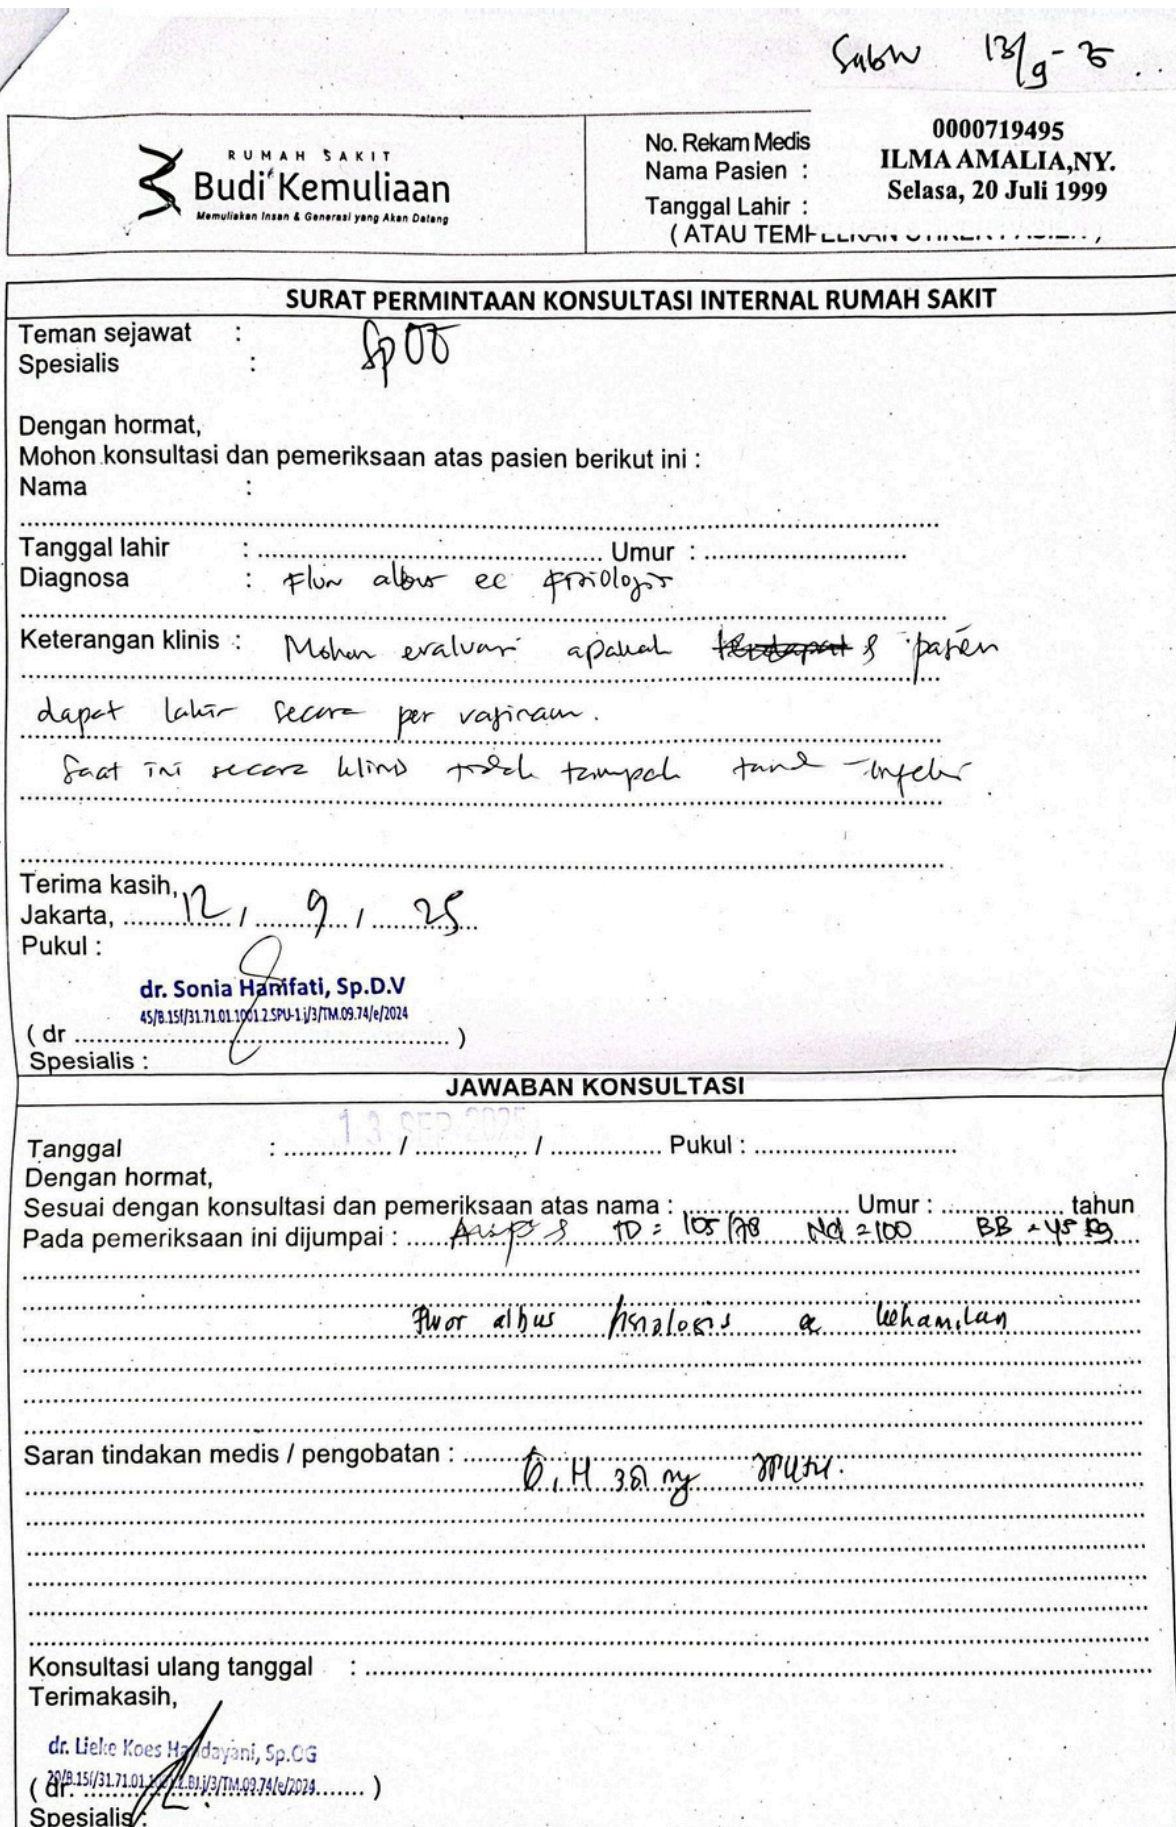 Sabtu 13/9-25
RUMAH SAKIT
Budi Kemuliaan
Memuliakan Insan & Generasi yang Akan Datang
No. Rekam Medis
0000719495
Nama Pasien :
ILMA AMALIA,NY.
Tanggal Lahir :
Selasa, 20 Juli 1999
( ATAU
SURAT PERMINTAAN KONSULTASI INTERNAL RUMAH SAKIT
Teman sejawat :
Spesialis : SpOG
Dengan hormat,
Mohon konsultasi dan pemeriksaan atas pasien berikut ini :
Nama :
Tanggal lahir : Umur :
Diagnosa : Fluor albus ec fisiologis
Keterangan klinis : Mohon evaluasi apakah terdapat pasien
dapat lahir secara per vaginam.
Saat ini secara klinis tidak tampak tanda infeksi
Terima kasih,
Jakarta, 12 / 9 / 25
Pukul :
dr. Sonia Hanifati, Sp.D.V
45/B.15f/31.71.01.1001.2.SPU-1.j/3/TM.09.74/e/2024
( dr )
Spesialis :
JAWABAN KONSULTASI
13 SEP 2025
Tanggal : / / Pukul :
Dengan hormat,
Sesuai dengan konsultasi dan pemeriksaan atas nama : Umur : tahun
Pada pemeriksaan ini dijumpai : TD = 105/78 Nd =100 BB = 45 kg
Fluor albus fisiologis kehamilan
Saran tindakan medis / pengobatan :
Konsultasi ulang tanggal :
Terimakasih,
dr. Lieke Koes Handayani, Sp.OG
( dr. )
Spesialis :